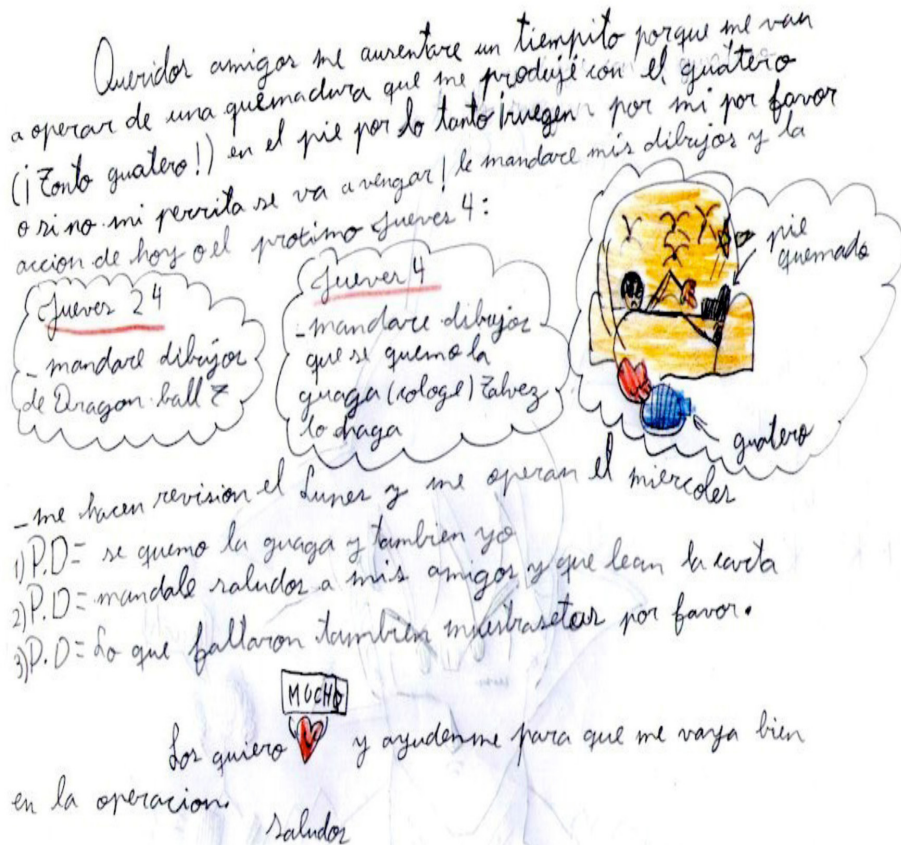 Queridos amigos me ausentare un tiempito porque me van
a operar de una quemadura que me produjé con el guatero
(¡Tonto guatero!) en el pie por lo tanto ¡ruegen por mi por favor
o si no mi perrita se va a vengar! le mandare mis dibujos y la
accion de hoy o el protimo Jueves 4:
Jueves 24
- mandare dibujos
de Dragon ball Z
Jueves 4
- mandare dibujos
que se quemo la
guaga (cologe) Talvez
lo haga
pie
quemado
guatero
- me hacen revision el Lunes y me operan el miercoles
1) P.D= se quemo la guaga y tambien yo
2) P.D= mandale saludos a mis amigos y que lean la carta
3) P.D= Lo que faltaron tambien muestrasetas por favor.
MUCHO
Los quiero y ayudenme para que me vaya bien
en la operacion.
saludos